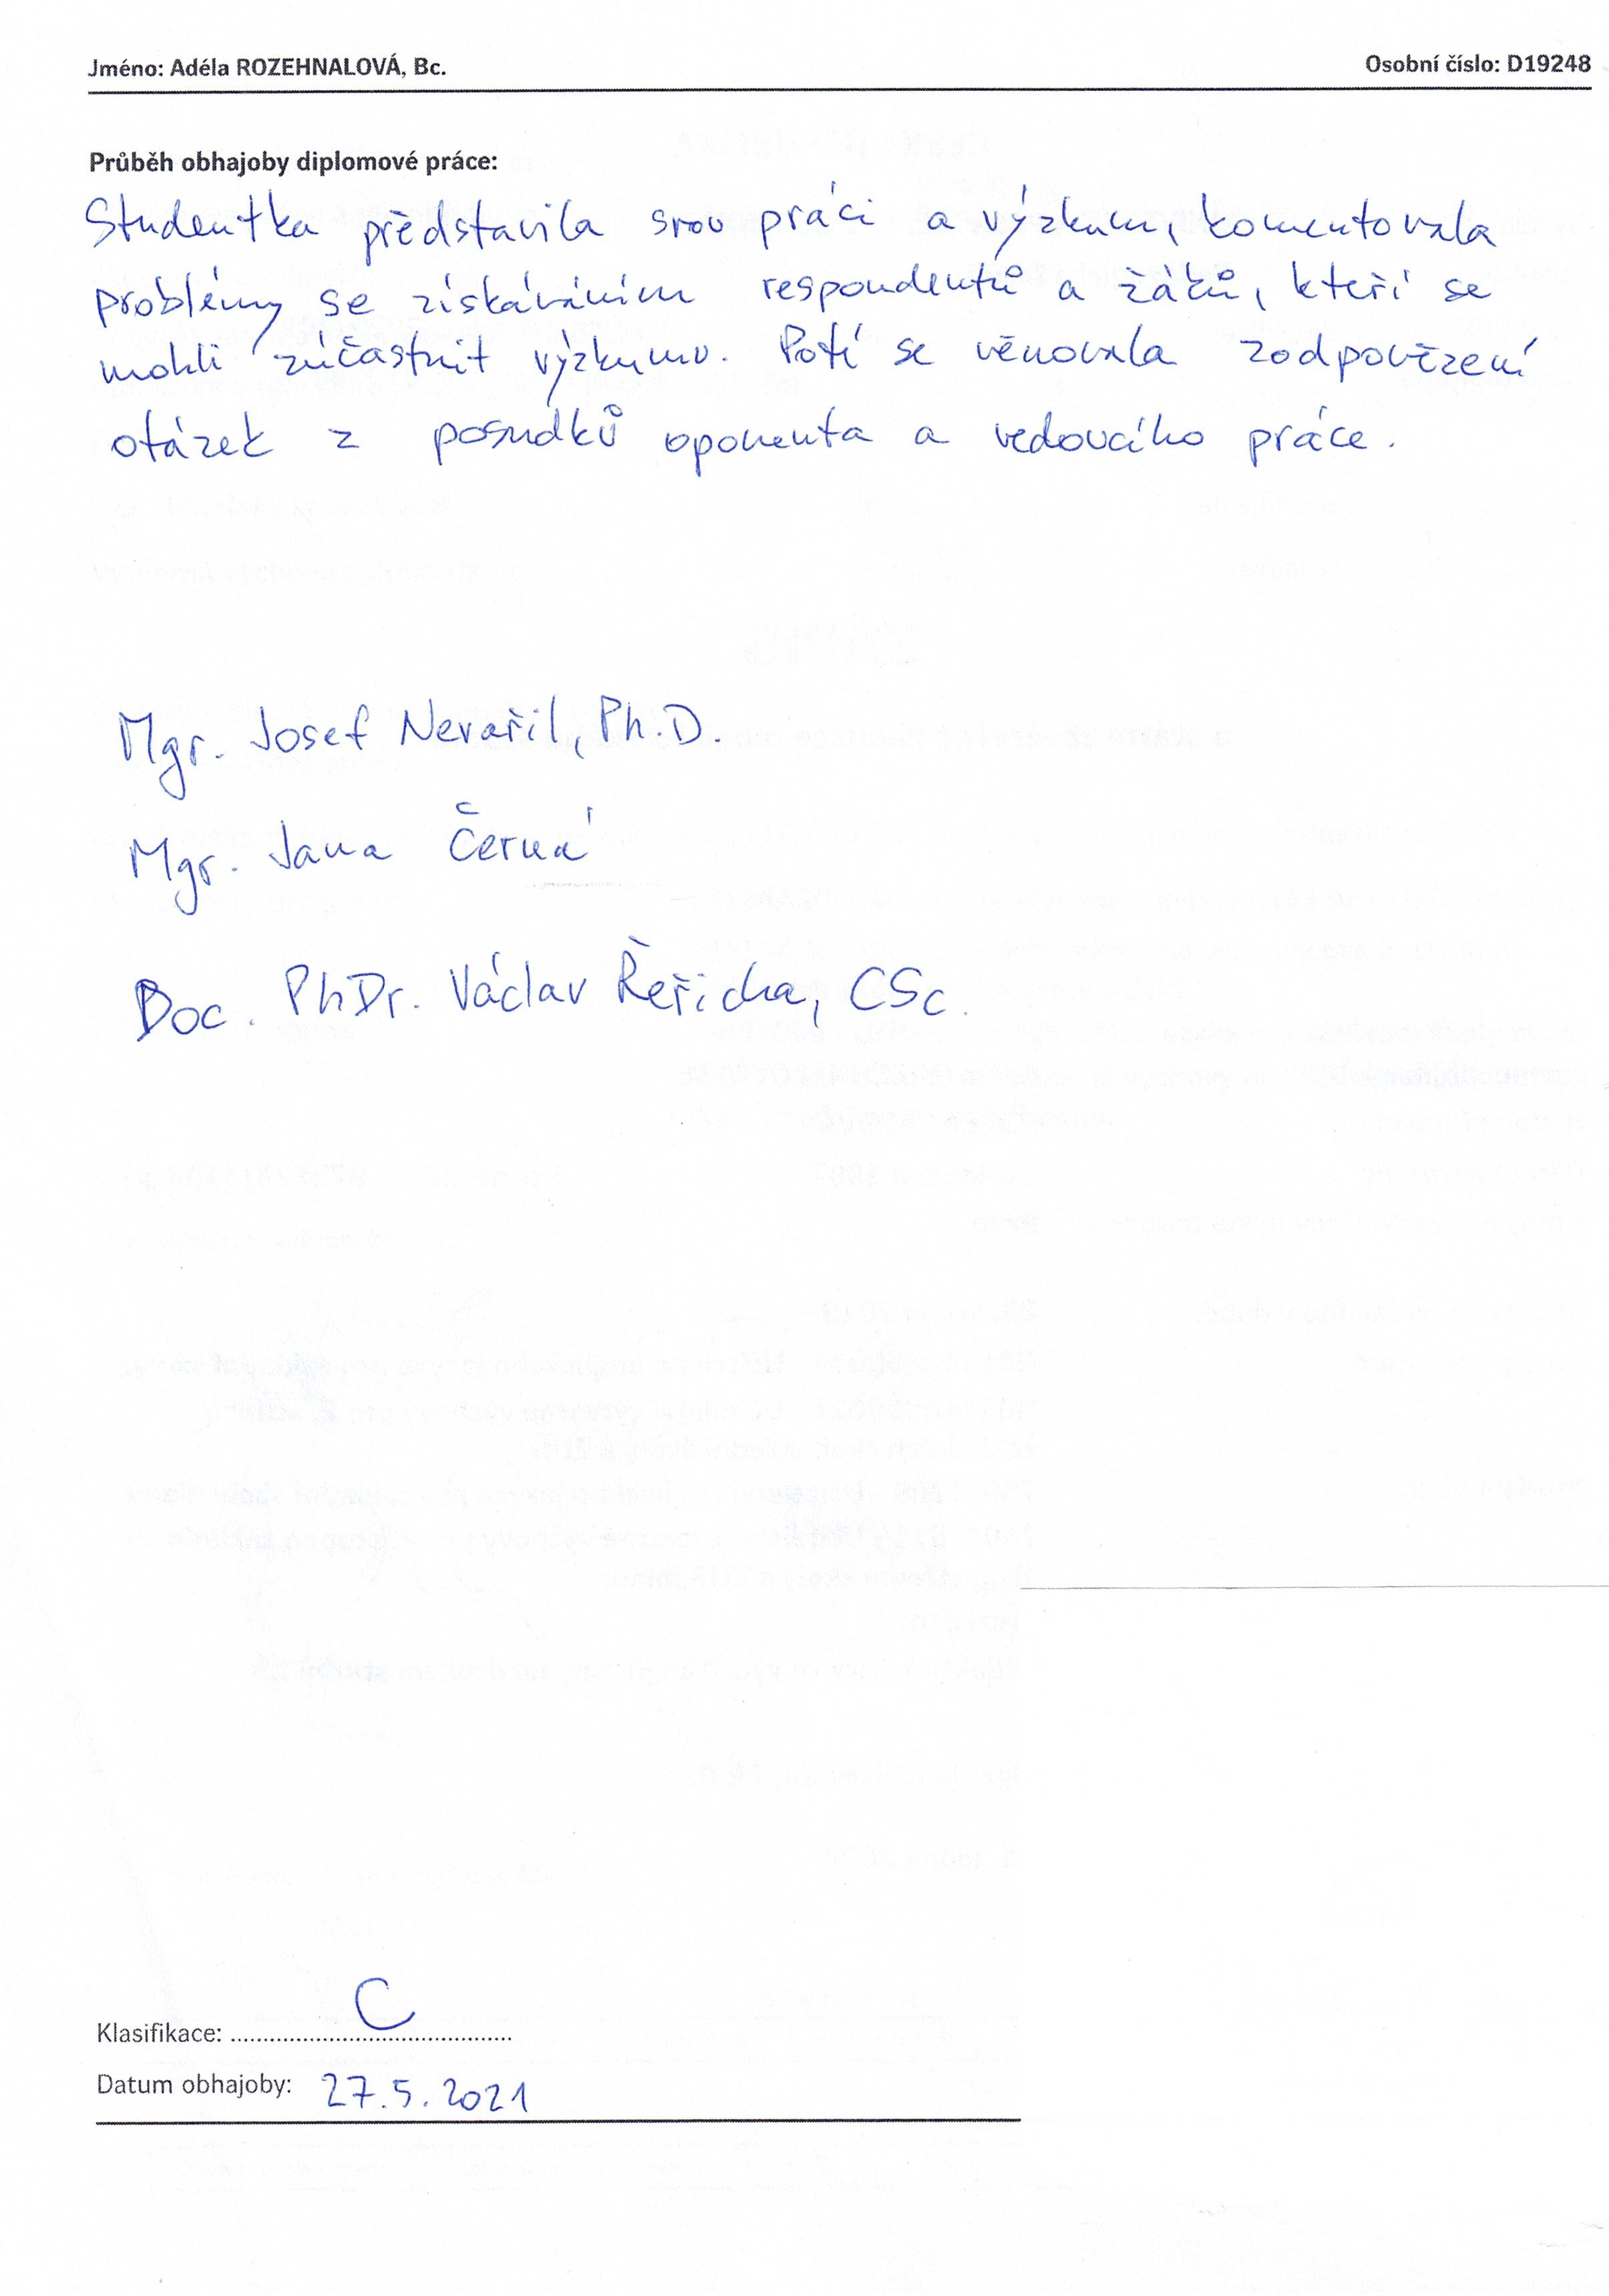 Jméno: Adéla ROZEHNALOVÁ, Bc. Osobní číslo: D19248
Průběh obhajoby diplomové práce:
Studentka představila svou práci a výzkum, komentovala
problémy se získáváním respondentů a žáků, kteří se
mohli zúčastnit výzkumu. Poté se věnovala zodpovězení
otázek z posudků oponenta a vedoucího práce.
Mgr. Josef Nevařil, Ph.D.
Mgr. Jana Černá
Doc. PhDr. Václav Řeřicha, CSc.
Klasifikace: C
Datum obhajoby: 27.5.2021